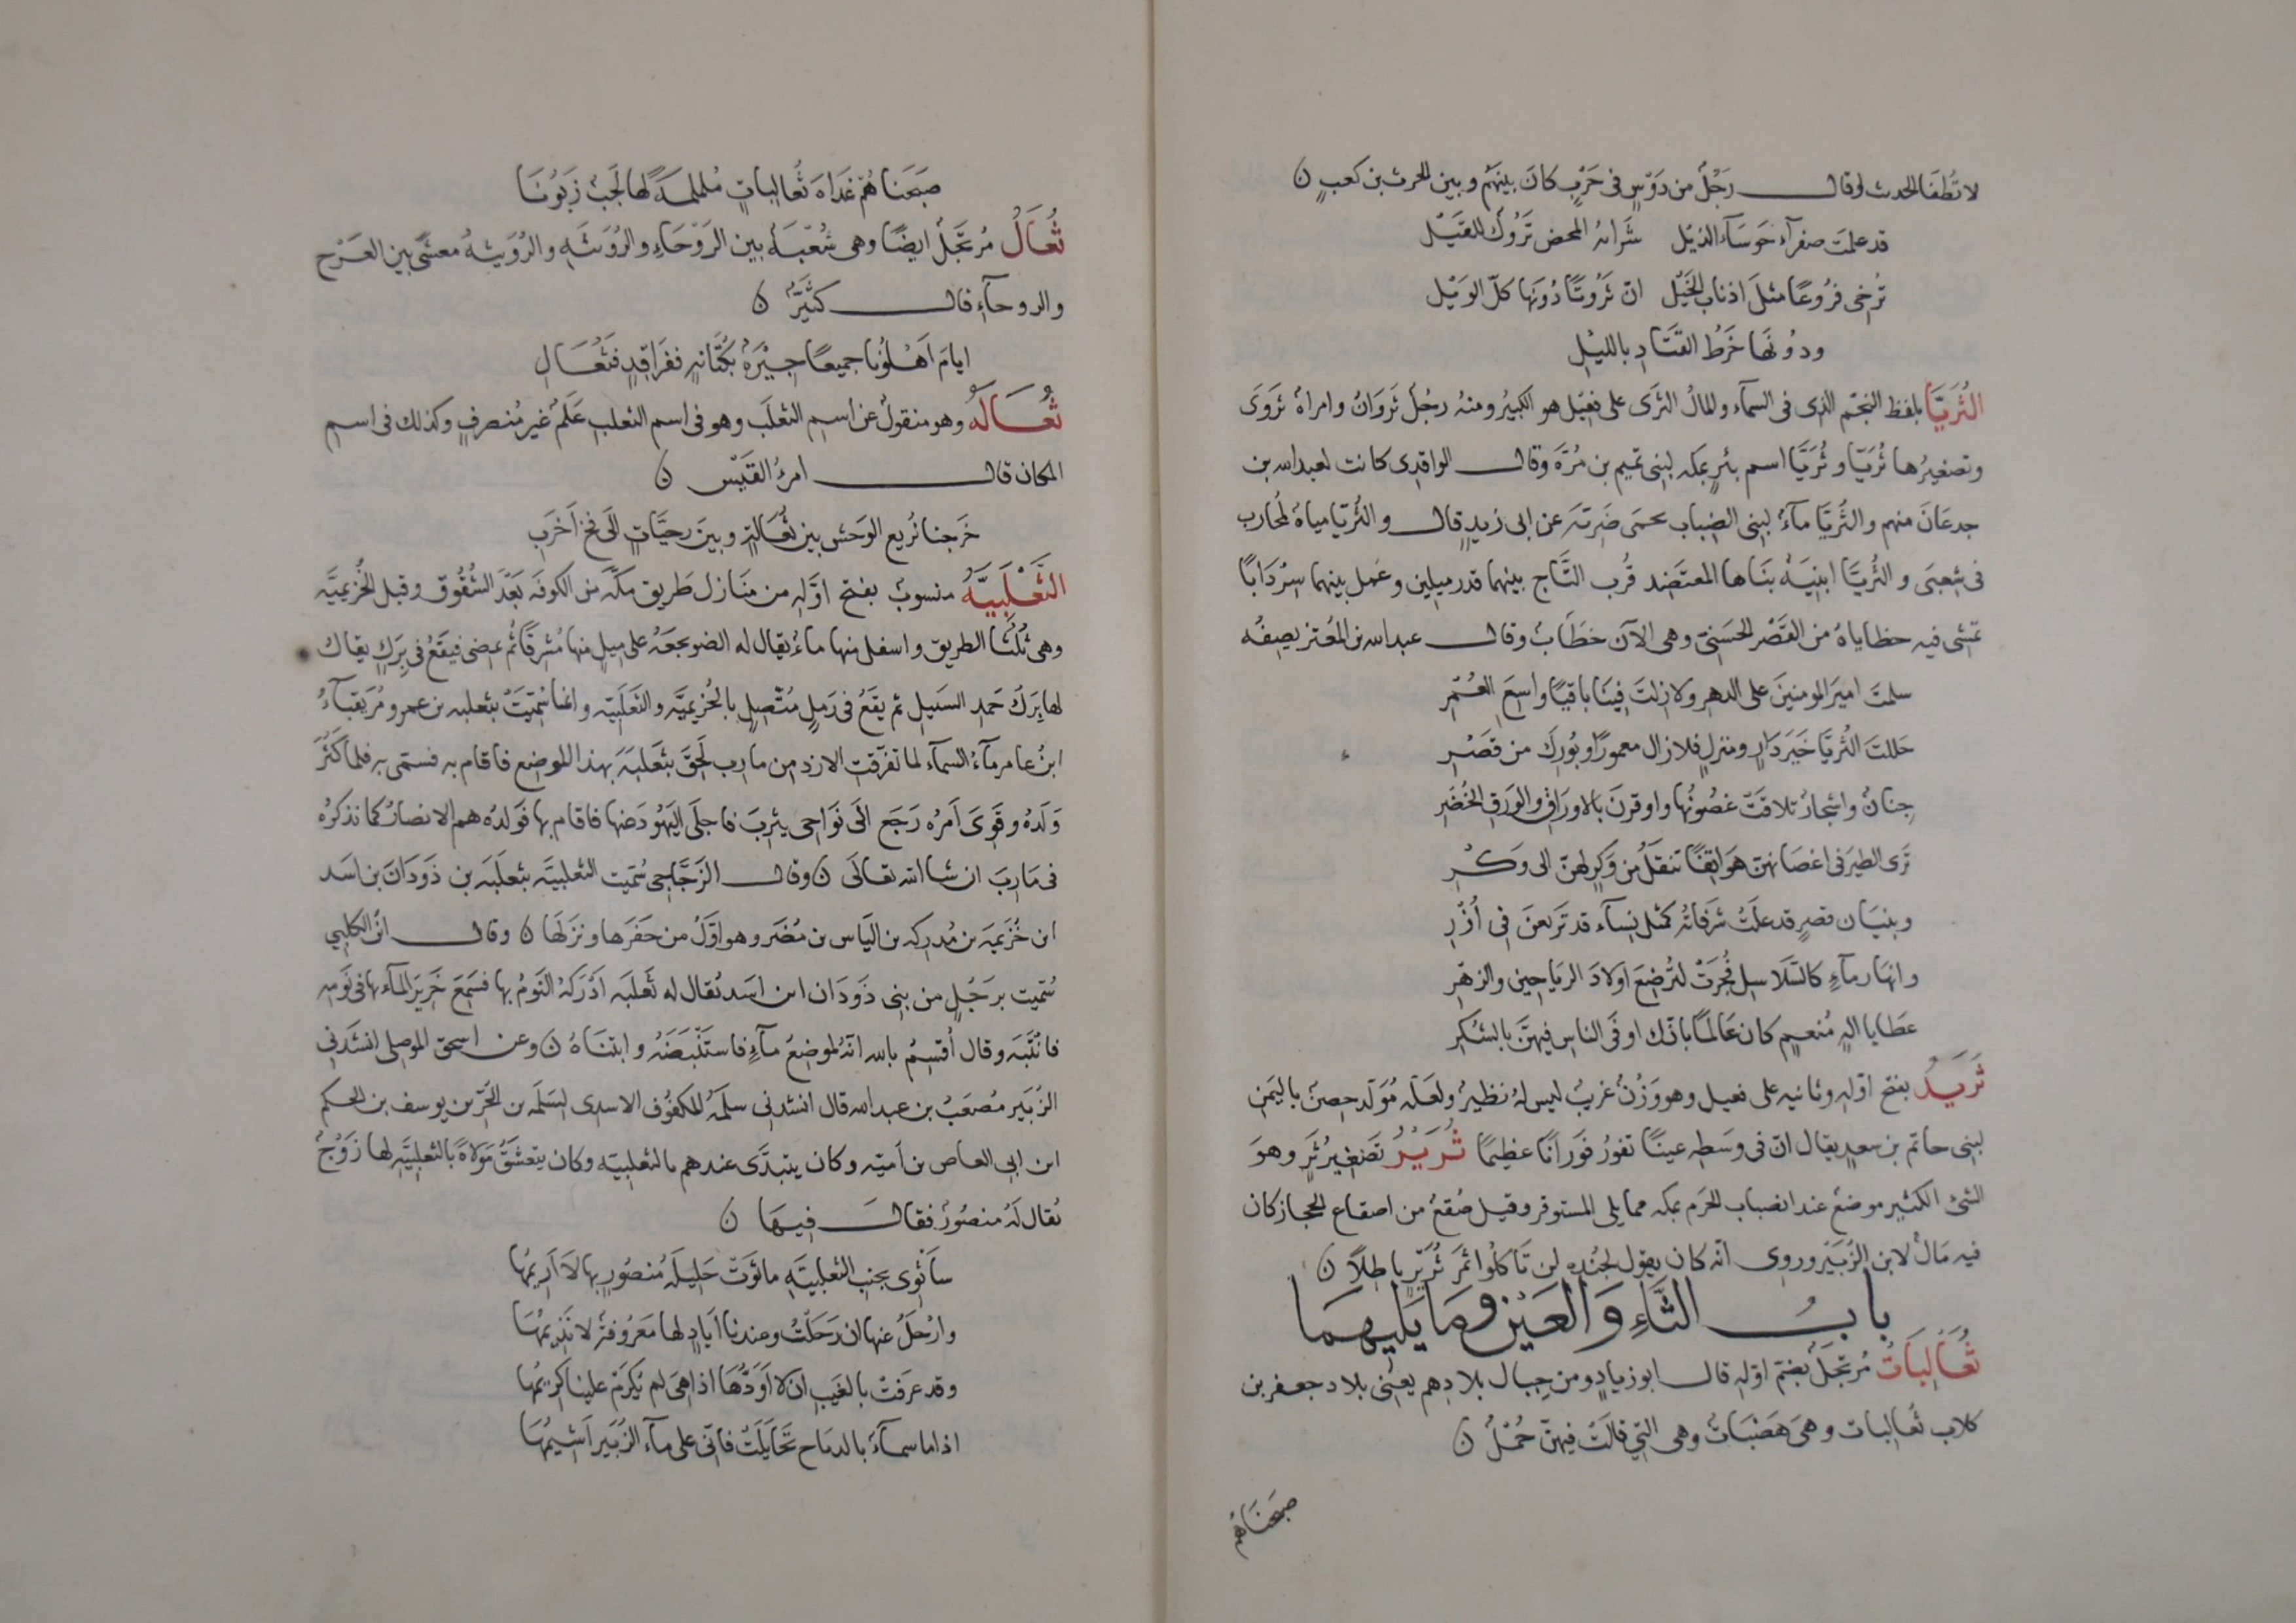 لا تُطفَا لحدث وقال رَجُلٌ من دَوْسٍ فى حَرْبٍ كانَ بينَهُم وبين الحرث بن كعبٍ ن
قد علمَتْ صفرآء حَوْسَآء الذيْل شَرابهُ المحض تَرُوك للقَيْل
تُرخى فرُوعًا مثلَ اذناب الخَيْل انّ ثَرُوتًا دُونَها كلّ الوَيْل
ودُونَهَا خَرْطُ القتَادِ بالليْلِ
الثُرَيَّا بلفظ النجم الذى فى السمآء والمالُ الثرَى على فعيْل هو الكبيرُ ومنهُ رجُلٌ ثروَانُ وامراةٌ ثروَى
وتصغيرُها ثُرَيّا وثُرَيَّا اسم بئرٍ بمكه لبنى تميم بن مُرّة وقال الواقدِى كانت لعبد الله بن
جدعَانَ منهم والثُريَّا مآءٌ لبنى الضِباب بحمَى ضَرِيّةَ عن ابى زيدٍ قال والثُرَيّا مياهٌ لمُحارب
فى شعبَى والثُريَّا ابنِيَةٌ بنَاها المعتضد قُرب التَّاج بينهما قدر ميلين وعَمل بينهما سِرْدَابًا
تمشى فيه حظاياهُ من القَصْر الحَسَنىّ وهى الآنَ خَرَابٌ وقال عبد الله بن المُعتز يصِفُه
سلمتَ اميرَ المومنينَ على الدهرِ ولا زلتَ فينَا باقيًا واسِعَ العُمْرِ
حَللتَ الثُريّا خَيرَ دَارٍ ومنزلٍ فلا زال معمورًا وبُورِكَ من قصْرِ
جِنانٌ واشجارٌ تلاقَتْ غصُونُها واوقرنَ بالاورَاقِ والوَرَقِ الخُضْرِ
تَرَى الطيرَ فى اغصَانهنّ هوَاتِفًا تنقلُ من وَكْرٍ لهنّ الى وَكْرِ
وبنيَان قصرٍ قد علَتْ شرَفاتهُ كمثل نِسآء قد تَربعنَ فى اُزْرِ
وانهَار مآءٍ كالسّلَاسِلِ فُجِرَتْ لتُرضِعَ اولادَ الرياحينِ والزهْرِ
عَطَايا الهٍ مُنعمٍ كان عَالمًا بانّك اوفى الناسِ فيهنّ بالشكرِ
ثَرَيدُ بفتح اوّلهِ وثانيه على فعيل وهو وَزْنٌ غريبٌ ليس لهُ نظيرٌ ولعلّه مُوَلّد حِصنٌ باليَمنِ
لبنى حاتم بن سعدٍ يقال انّ فى وسَطهِ عينًا تفورُ فَورَانًا عظيمًا ثُرَيْرُ تصغيرُ ثَرٍ وهوَ
الشئ الكثير موضعٌ عند انصباب الحَرم بمكه مما يلى المستوفر وقيل صُقعٌ من اصقاع الحجاز كان
فيه مَالٌ لابن الزُبَيْر وروى انّه كان يقول لجُندِه لن تأكلُوا ثمَرَ ثُرَيْرٍ باطِلًا ن
بابُ الثَّاءِ وَالعَيْنِ وَمَا يَليهمَا
ثُعَالِبَاتٌ مُرتجَلٌ بضمّ اوّلهِ قال ابو زيادٍ ومن جِبال بلادِهم يعنى بلاد جعفر بن
كلاب ثُعالبات وهىَ هَضبَاتٌ وهى التى قالتْ فيهنّ حُمْلُ ن
صبَحنَاهُمُ
صبَحنَا هُم غَدَاةَ ثُعَالِباتٍ مُلملمةً لها لجَبٌ زبُونَا
ثُعَالُ مُرتجَلٌ ايضًا وهى شُعْبَةٌ بين الرَوْحَاءِ والرُوَيثَةِ والرُوَيثَةُ معشًى بين العَرْجِ
والروحآءِ قال كثَيّرٌ ن
ايامَ اهْلُونَا جميعًا جِيْرةٌ بكُتَانةٍ ففَرَاقِدٍ فثُعَالِ
ثُعَالَةُ وهو منقولٌ عن اسم الثعلَب وهو فى اسم الثعلبِ عَلمٌ غير مُنصرفٍ وكذلك فى اسم
المكان قال امرؤُ القَيْس ن
خَرجنا نُريعُ الوَحش بين ثُعالةٍ وبينَ رحيَّاتٍ الَى فجّ اَخرَبِ
الثَعْلَبِيّةُ منسوبٌ بفتح اوّله من مَنَازل طَريق مكّة من الكوفَة بَعْدَ الشُقُوقِ وقبل الخُزَيميّة
وهى ثُلُثَا الطريق واسفل منها ماءٌ يقال له الضويجعَةُ على ميلٍ منها مُشرِفًا ثُم يمضى فيقَعُ فى بِرَكٍ يقال
لها بِرَكُ حَمد السَبيل ثم يقَعُ فى رَملٍ مُتّصِلٍ بالخُزَيميّة والثَعلَبيّة وانما سُمّيَتْ بثعلبه بن عمرو مُزَيقيآءُ
ابنُ عامر مآءُ السمآء لما تفرّقت الازد من مارب لَحِقَ ثَعْلَبَةَ بهذا الموضع فاقام به فسمّى به فلما كَثُرَ
وَلَدهُ وقَوِىَ اَمرُه رَجَعَ الَى نَوَاحى يثربَ فاجلَى اليَهُودَ عَنها فاقام بها فَولدُه هم الانصارُ كما نذكرهُ
فى مَارِبَ ان شا الله تعَالَى ن وقال الزَجَّاجى سُمّيت الثعلبيّة بثعلبَه بن دُودَانَ بن اسَد
ابن خُزَيمَه بن مُدرِكه بن اليَاس بن مُضَر وهو اوّلُ من حَفَرها ونزَلَها ن وقال ابنُ الكلبِي
سُمّيت برَجُلٍ من بنى دُودَان ابن اسَد يُقال له ثَعلبَه ادْرَكَهُ النَومُ بها فسَمِعَ خَريرَ المآء بها فى نَومِه
فانْتَبَه وقال اُقسِمُ بالله انّه لموضِعُ مآءٍ فاستَنْبَطَهُ وابتناهُ ن وعن اسحق الموصلى انشدَنى
الزُبَير مُصعَبُ بن عبد الله قال انشدنى سلمةُ المكفُوف الاسدى لسَلمَه بن الحُرّ بن يوسف بن الحكم
ابن ابى العاص بن اُميّه وكان يتبدَّى عندهم بالثعلبيّه وكان يتعشَقُ مَولاةً بالثعلبيَّةِ لها زَوْجٌ
يُقال لَهُ منصُورٌ فقال فيهَا ن
سأثوِى بجنبِ الثعلبيَّةِ ما ثوَتْ حَلِيلَةُ مَنصُورٍ بها لَا اَرِيمُها
وارْحَلُ عنها ان رَحَلَتْ وعندنا اَيادٍ لها مَعرُوفةٌ لا نَذِيمُهَا
وقد عرَفتْ بالغَيبِ ان لا اَوَدُّهَا اذا هىَ لم يَكرَمْ علينا كرِيمُها
اذا ما سمآءٌ بالدماحِ تَخايَلَتْ فانّى على مآء الزُبَير اَشِيمُهَا